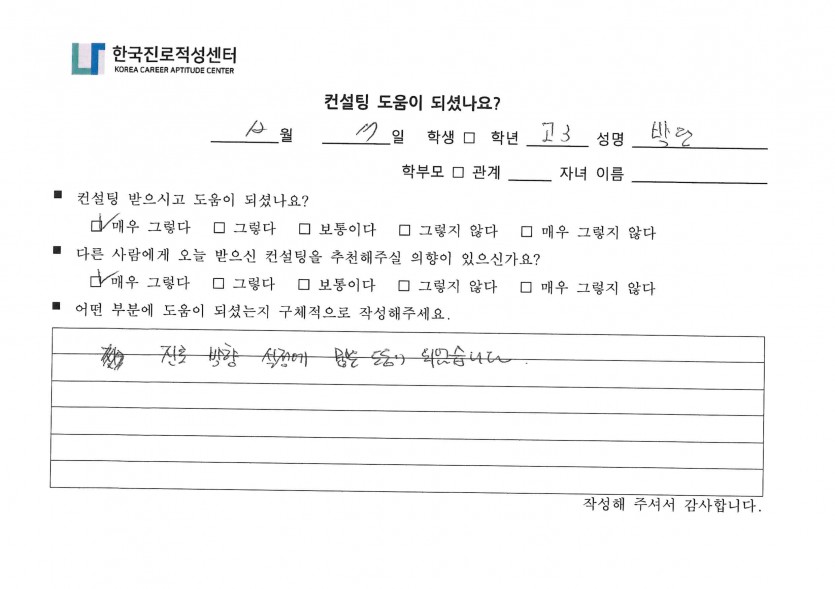 한국진로적성센터
KOREA CAREER APTITUDE CENTER
컨설팅 도움이 되셨나요?
월 일 학생 □ 학년 고3 성명 박
학부모 □ 관계 자녀 이름
■ 컨설팅 받으시고 도움이 되셨나요?
☑ 매우 그렇다 □ 그렇다 □ 보통이다 □ 그렇지 않다 □ 매우 그렇지 않다
■ 다른 사람에게 오늘 받으신 컨설팅을 추천해주실 의향이 있으신가요?
☑ 매우 그렇다 □ 그렇다 □ 보통이다 □ 그렇지 않다 □ 매우 그렇지 않다
■ 어떤 부분에 도움이 되셨는지 구체적으로 작성해주세요.
진로 방향 설정에 많은 도움이 되었습니다.
작성해 주셔서 감사합니다.